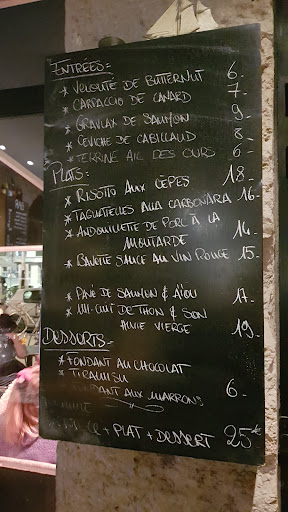 ENTRÉES:
* VELOUTÉ DE BUTTERNUT 6.-
* CARPACCIO DE CANARD 7-
* GRAVLAX DE SAUMON 9-
* CEVICHE DE CABILLAUD 8-
* TERRINE AIL DES OURS 6-
PLATS:
* RISOTTO AUX CÈPES 18.-
* TAGLIATELLES ALLA CARBONARA 16-
* ANDOUILLETTE DE PORC À LA
MOUTARDE 14.-
* BAVETTE SAUCE AU VIN ROUGE 15.-
* PAVÉ DE SAUMON & AÏOLI 17.-
* MI-CUIT DE THON & SON
HUILE VIERGE 19.-
DESSERTS-
* FONDANT AU CHOCOLAT
* TIRAMISU
AUX MARRONS 6.-
+ PLAT + DESSERT 25€